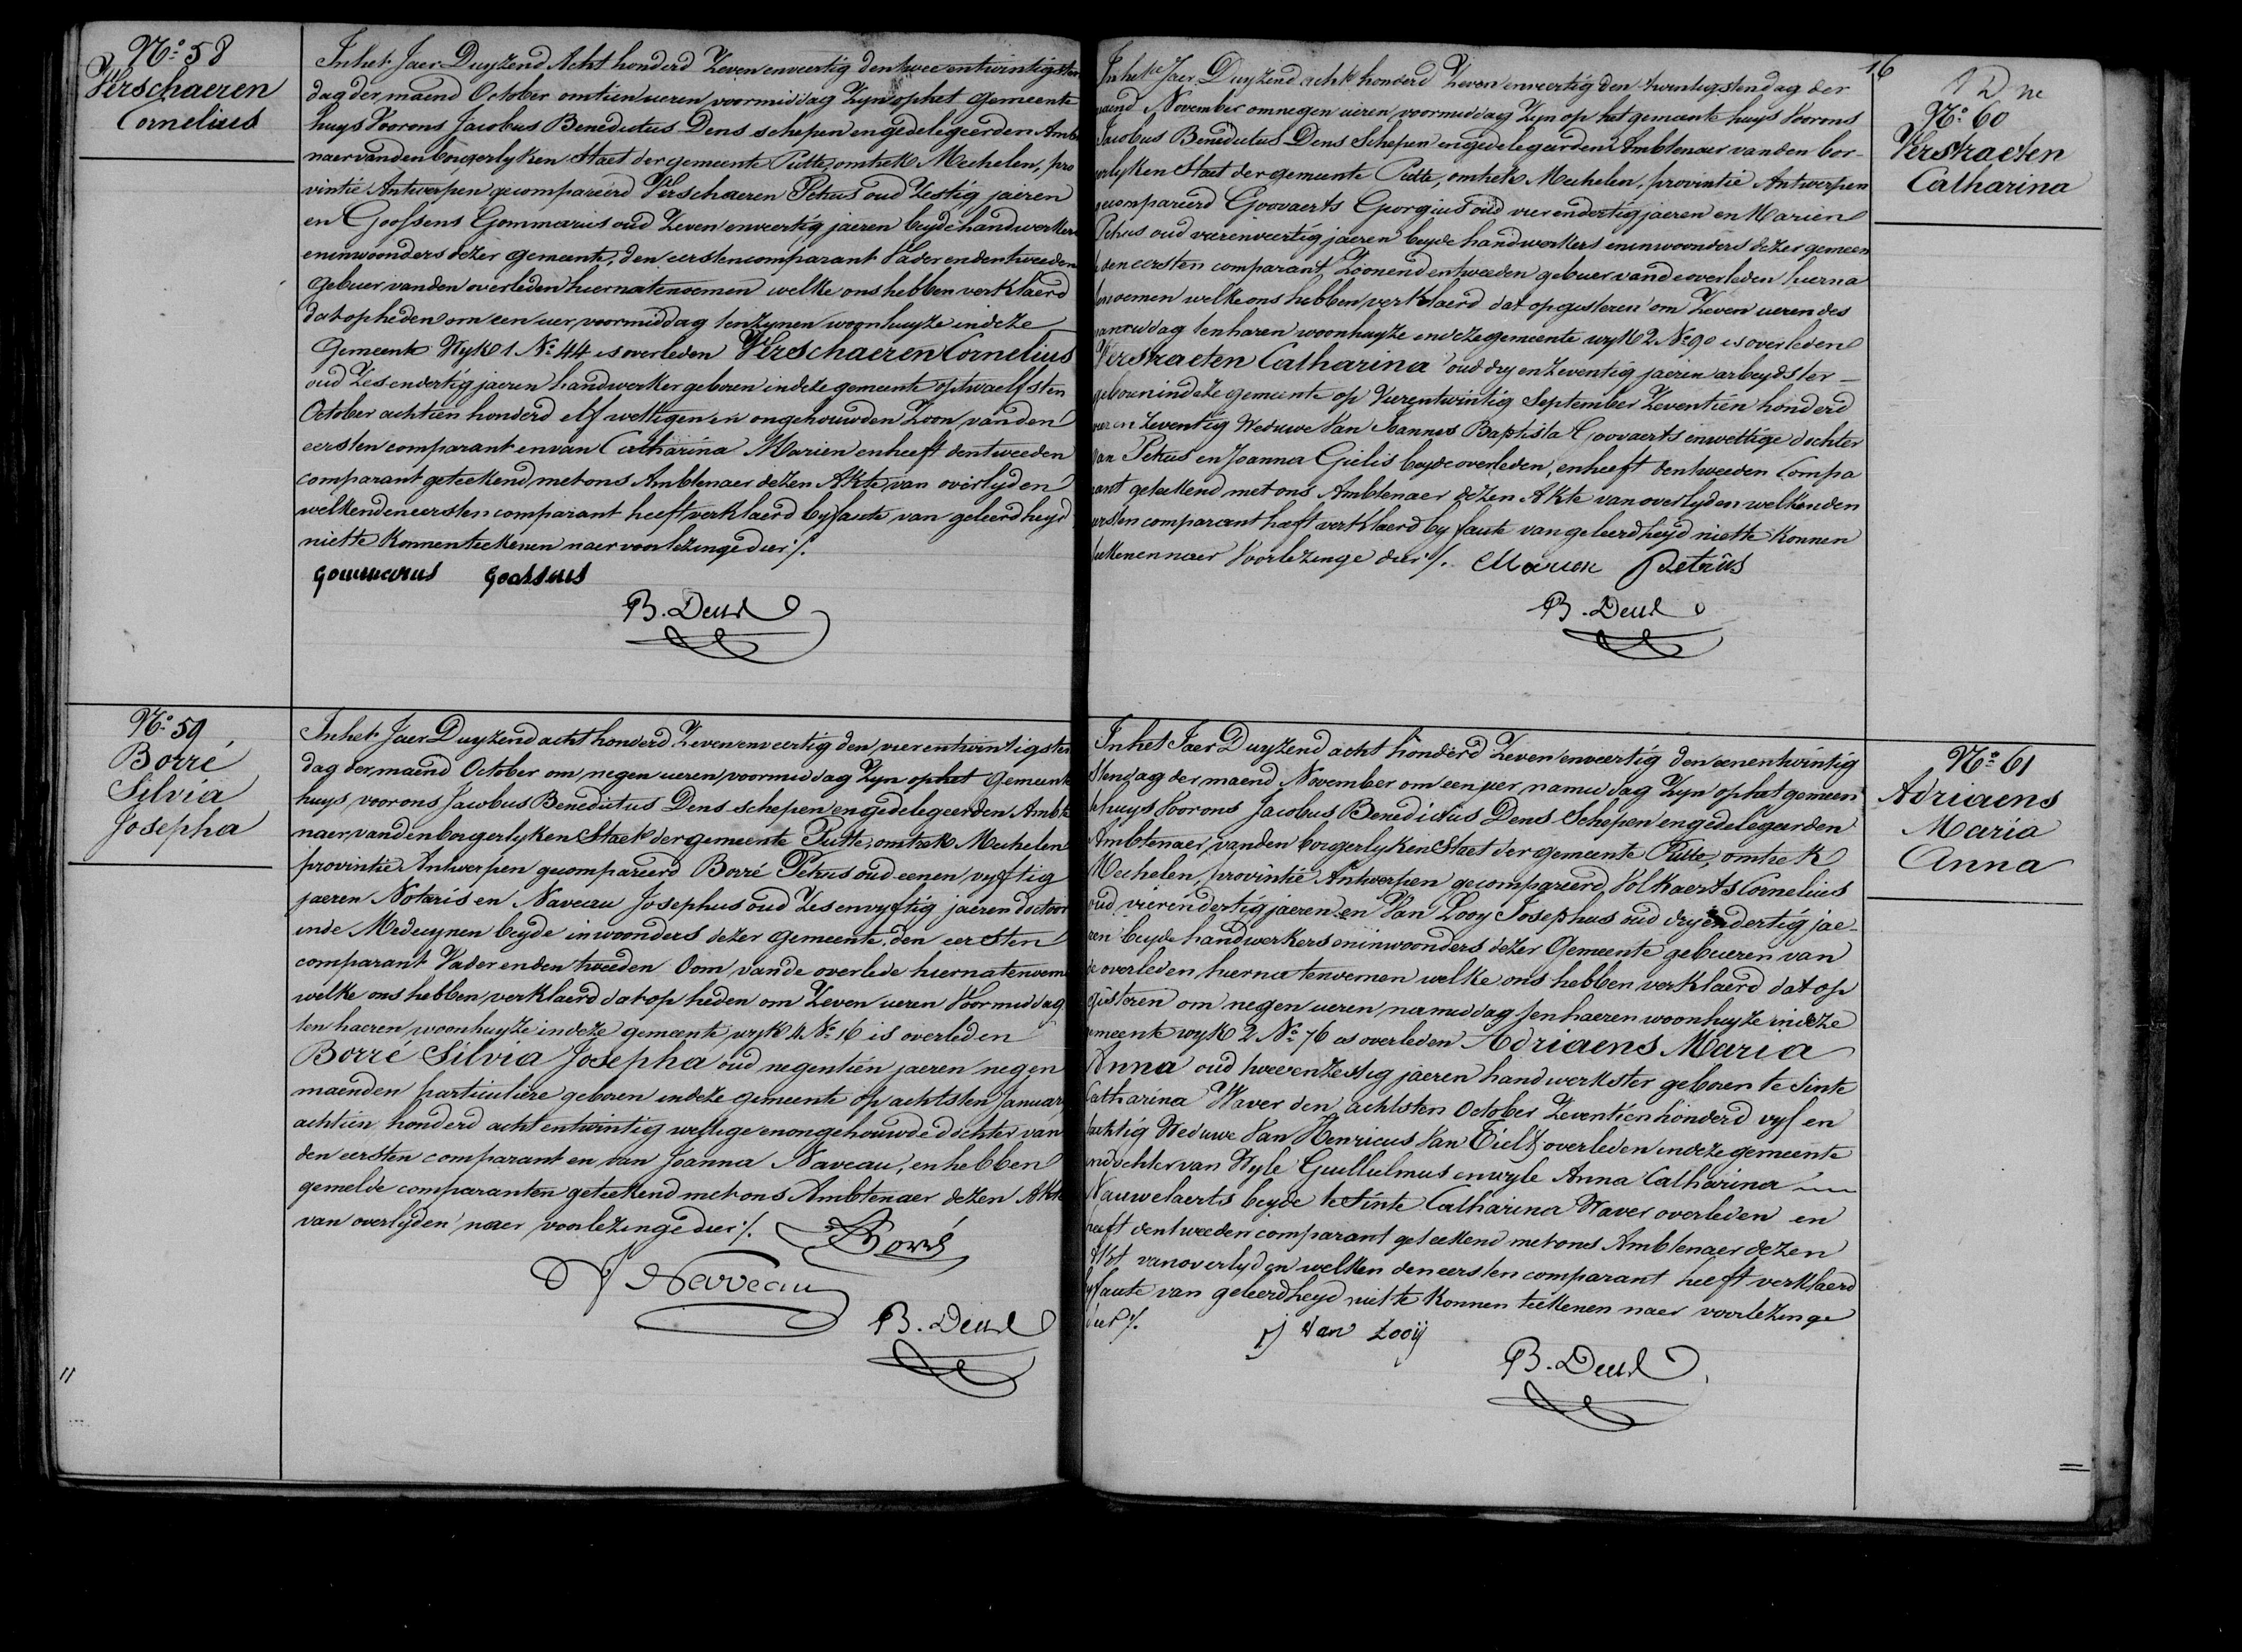 N° 58
Verschaeren
Cornelius
In het Jaer Duyzend Acht honderd Zeven en veertig den twee entwintigsten
dag der maend October om tien ueren voormiddag Zyn op het gemeente
huys Voor ons Jacobus Benedictus Dens schepen en gedelegeerden Amb
naer van den borgerlyken Staet der gemeente Putte, omtrek Mechelen, pro
vintie Antwerpen gecompareerd Verschaeren Petrus oud Zestig jaeren
en Goossens Gommarius oud Zeven en veertig jaeren beyde handwerkers
en inwoonders dezer gemeente, den eersten comparant Vader en den tweeden
gebuer van den overleden hiernatenoemen welke ons hebben verklaerd
dat op heden om een uer voormiddag ten zynen woonhuyze in deze
Gemeente Wyk 1 N° 44 is overleden Verschaeren Cornelius
oud Zes en dertig jaeren handwerker geboren in deze gemeente op twaelfsten
October achtien honderd elf wettigen en ongehouwden Zoon van den
eersten comparant en van Catharina Marien en heeft den tweeden
comparant geteekend met ons Ambtenaer dezen Akte van overlyden
welken den eersten comparant heeft verklaerd by faute van geleerdheyd
niet te konnen teekenen naer voorlezinge dier ./.
Gommarus Goossens
B. Dens
N° 59
Borré
Silvia
Josepha
In het Jaer Duyzend acht honderd Zeven en veertig den vier entwintigsten
dag der maend October om negen ueren voormiddag Zyn op het Gemeente
huys, voor ons Jacobus Benedictus Dens schepen en gedelegeerden Ambte
naer, van den borgerlyken Staet der gemeente Putte, omtrek Mechelen
provintie Antwerpen gecompareerd Borré Petrus oud eenen vyftig
jaeren Notaris en Naveau Josephus oud Zes en vyftig jaeren doctoor
in de Medecynen beyde inwoonders dezer gemeente, den eersten
comparant Vader en den tweeden Oom van de overlede hiernatenoem
welke ons hebben verklaerd dat op heden om Zeven ueren Voormiddag
ten haeren woonhuyze in deze gemeente wyk 4 N° 16 is overleden
Borré Silvia Josepha oud negentien jaeren negen
maenden particuliere geboren in deze gemeente op achtsten January
achtien honderd acht entwintig wettige en ongehouwde dochter van
den eersten comparant en van Joanna Naveau, en hebben
gemelde comparanten geteekend met ons Ambtenaer dezen Akte
van overlyden naer voorlezinge dier ./. Borré
Naveau
B. Dens
16
N° 60
Verstraeten
Catharina
In het Jaer Duyzend acht honderd Zeven en veertig den twintigsten dag der
maend November om negen ueren voormiddag Zyn op het gemeente huys Voor ons
Jacobus Benedictus Dens Schepen en gedelegeerden Ambtenaer van den bor-
gerlyken Staet der gemeente Putte, omtrek Mechelen, provintie Antwerpen
gecompareerd Goovaerts Georgius oud vier en dertig jaeren en Marien
Petrus oud vier en veertig jaeren beyde handwerkers en inwoonders dezer gemeen
te den eersten comparant Zoon en den tweeden gebuer van de overleden hierna
tenoemen welke ons hebben verklaerd dat op gisteren om Zeven ueren des
namiddag ten haren woonhuyze in deze gemeente wyk 2 N° 90 is overleden
Verstraeten Catharina oud dry en Zeventig jaeren arbeydster
geboren in deze gemeente op Vier entwintig September Zeventien honderd
vier en Zeventig Weduwe Van Joannes Baptista Goovaerts en wettige dochter
van Petrus en Joanna Gielis beyde overleden, en heeft den tweeden Compa
rant geteekend met ons Ambtenaer dezen Akte van overlyden welken den
eersten comparant heeft verklaerd by faute van geleerdheyd niet te konnen
teekenen naer Voorlezinge dier ./. Marien Petrus
B. Dens
N° 61
Adriaens
Maria
Anna
In het Jaer Duyzend acht honderd Zeven en veertig den eenentwintig
sten dag der maend November om een uer namiddag Zyn op het gemeen
te huys Voor ons Jacobus Benedictus Dens Schepen en gedelegeerden
Ambtenaer, van den borgerlyken Staet der gemeente Putte, omtrek
Mechelen, provintie Antwerpen gecompareerd Volkaerts Cornelius
oud vier en dertig jaeren en Van Looy Josephus oud dry en dertig jae-
ren beyde handwerkers en inwoonders dezer Gemeente gebueren van
de overleden hiernatenoemen welke ons hebben verklaerd dat op
gisteren om negen ueren namiddag ten haeren woonhuyze in deze
gemeente wyk 2 N° 76 is overleden Adriaens Maria
Anna oud twee en Zestig jaeren handwerkster geboren te Sinte
Catharina Waver den achtsten October Zeventien honderd vyf en
tachtig Weduwe Van Henricus Van Tielt overleden in deze gemeente
en dochter van Wyle Guillielmus en wyle Anna Catharina
Nauwelaerts beyde te Sinte Catharina Waver overleden en
heeft den tweeden comparant geteekend met ons Ambtenaer dezen
Akt van overlyden welken den eersten comparant heeft verklaerd
by faute van geleerdheyd niet te konnen teekenen naer voorlezinge
dier ./.
J Van Looij
B. Dens